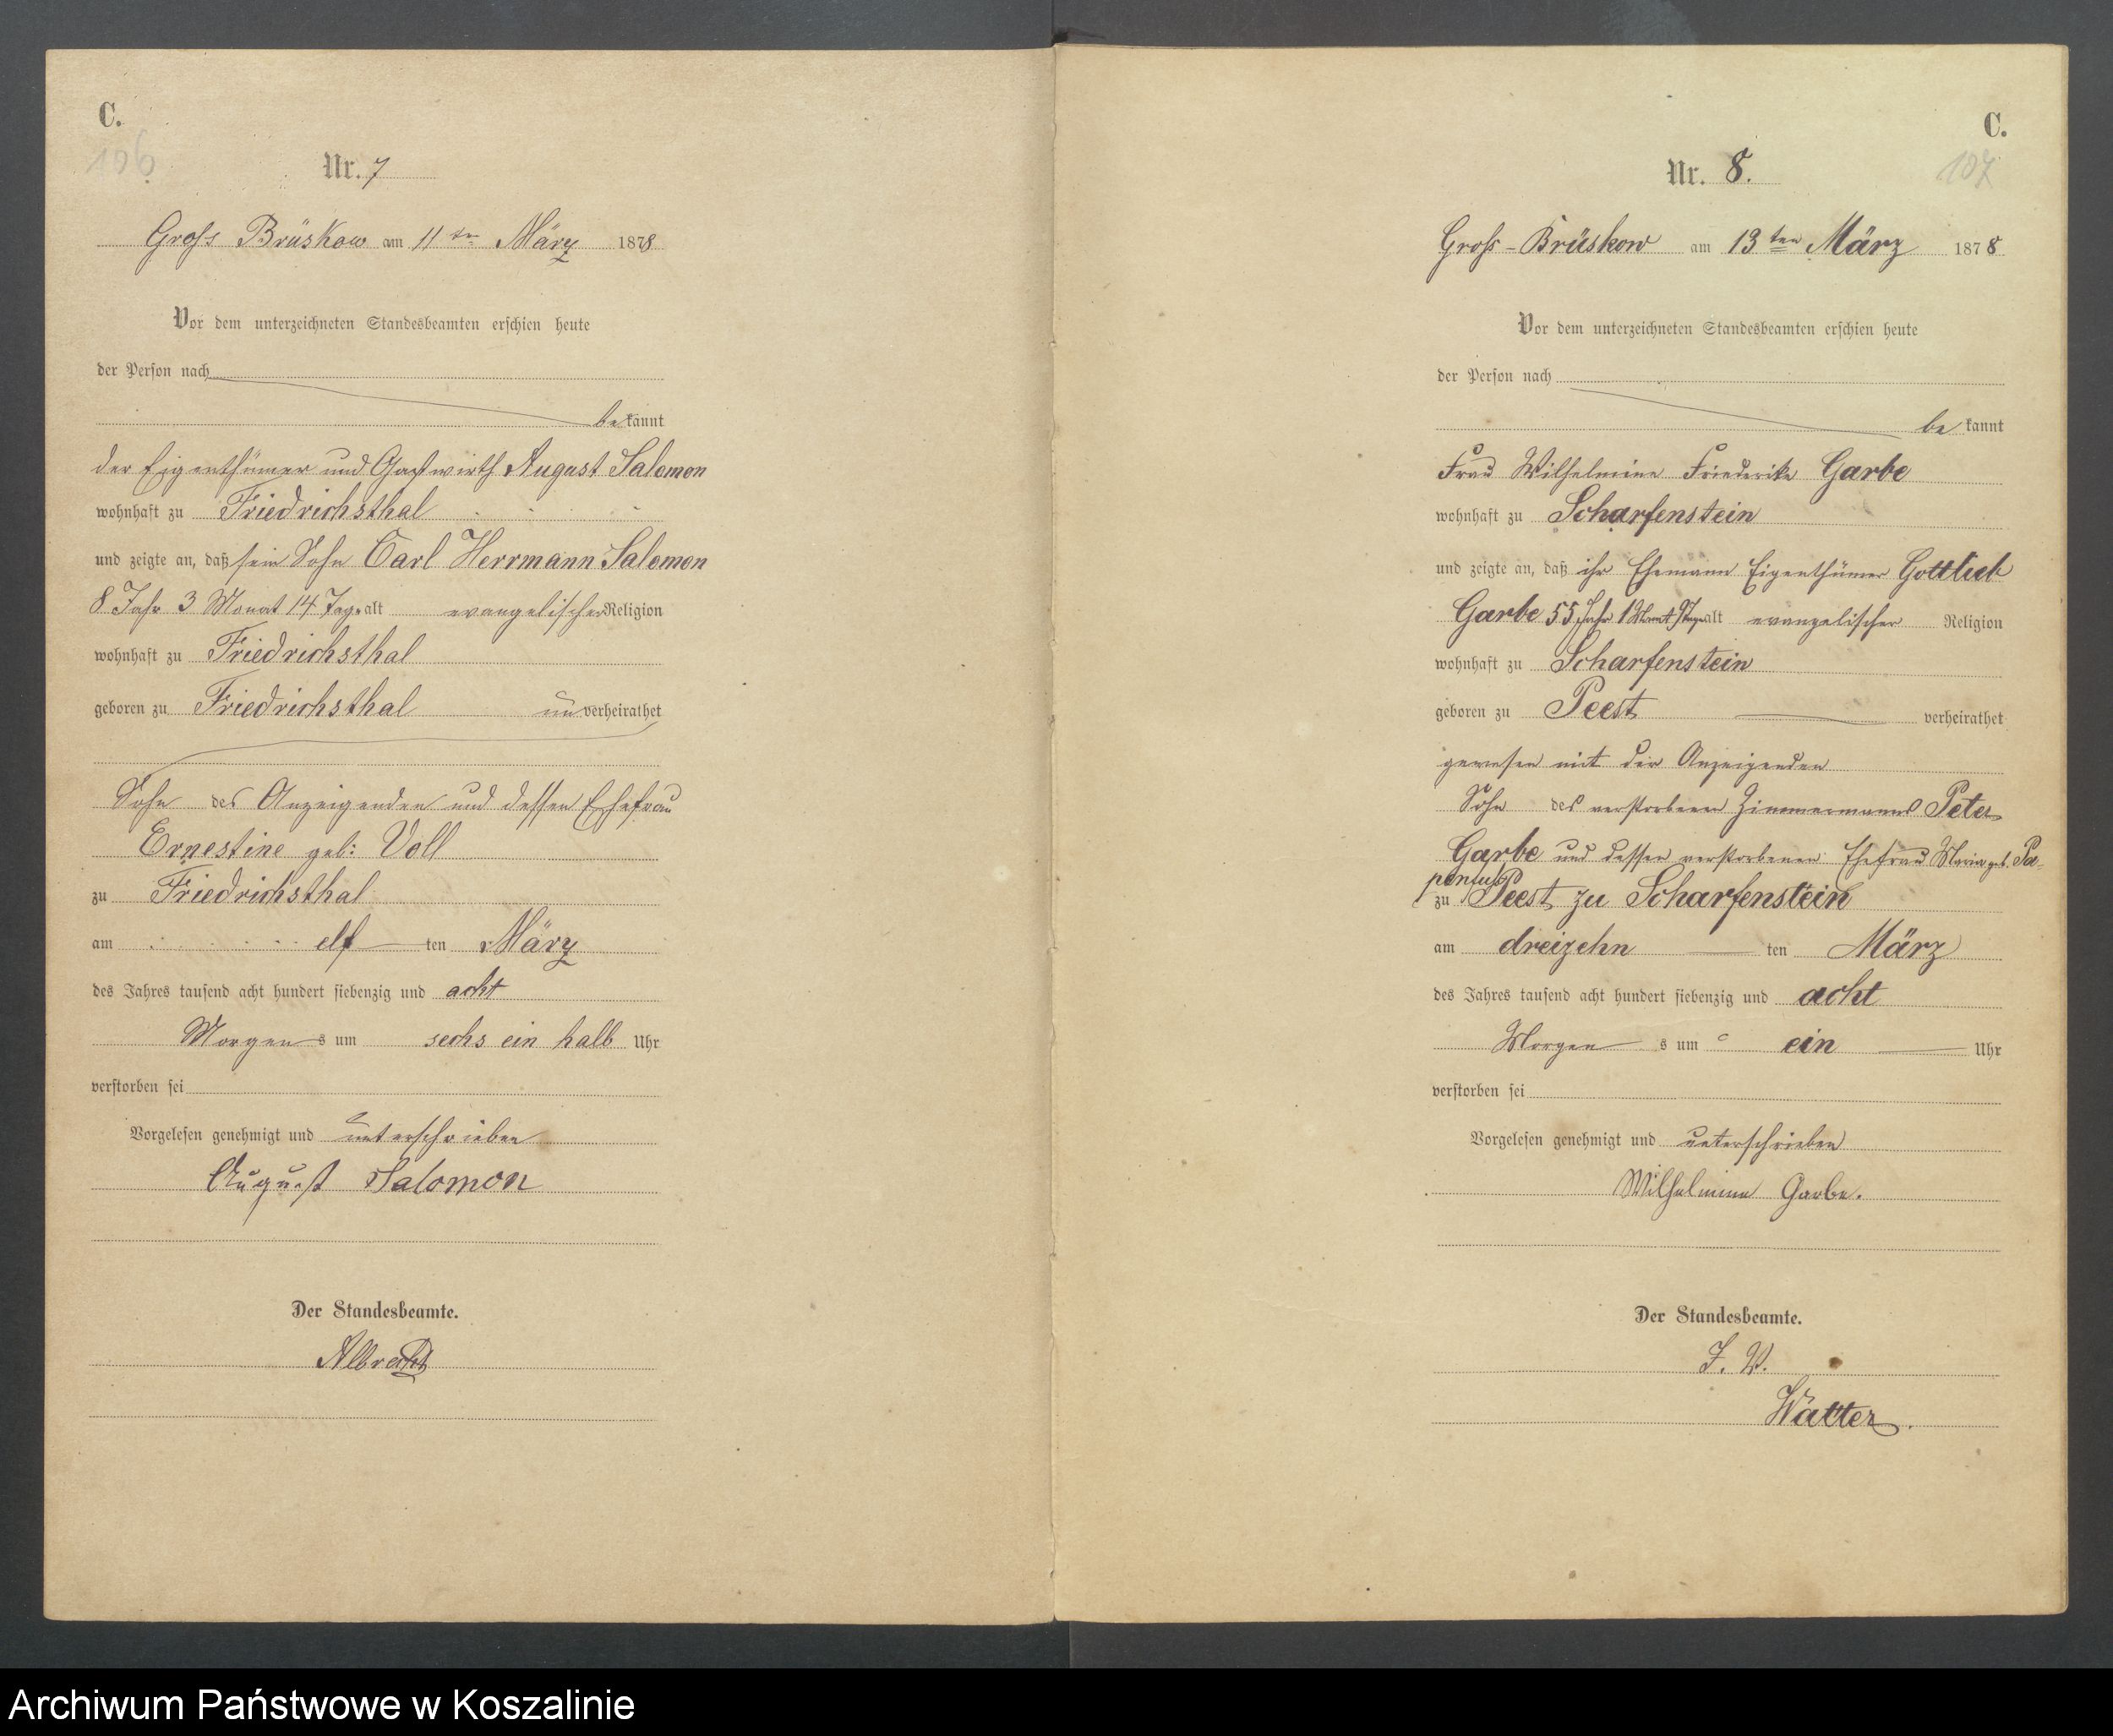 C.
196
Nr. 7
Gross Brüskow am 11ten März 1878
Vor dem unterzeichneten Standesbeamten erschien heute
der Person nach
bekannt
der Eigenthümer und Gastwirth August Salomon
wohnhaft zu Friedrichsthal
und zeigte an, daß sein Sohn Carl Herrmann Salomon
8 Jahr 3 Monat 14 Tage alt evangelischer Religion
wohnhaft zu Friedrichsthal
geboren zu Friedrichsthal unverheirathet
Sohn des Anzeigenden und dessen Ehefrau
Ernestine geb: Voll
zu Friedrichsthal
am elf ten März
des Jahres tausend acht hundert siebenzig und acht
Morgens um sechs ein halb Uhr
verstorben sei
Vorgelesen genehmigt und unterschrieben
August Salomon
Der Standesbeamte.
Albrecht
C.
197
Nr. 8.
Gross-Brüskow am 13ten März 1878
Vor dem unterzeichneten Standesbeamten erschien heute
der Person nach
bekannt
Frau Wilhelmine Friederike Garbe
wohnhaft zu Scharfenstein
und zeigte an, daß ihr Ehemann Eigenthümer Gottlieb
Garbe 55 Jahr 1 Monat 9 Tage alt evangelischer Religion
wohnhaft zu Scharfenstein
geboren zu Peest verheirathet
gewesen mit der Anzeigenden
Sohn des verstorbenen Zimmermanns Peter
Garbe und dessen verstorbenen Ehefrau Maria geb. Pa-
penfuß
zu Peest zu Scharfenstein
am dreizehn ten März
des Jahres tausend acht hundert siebenzig und acht
Morgens um ein Uhr
verstorben sei
Vorgelesen genehmigt und unterschrieben
Wilhelmine Garbe.
Der Standesbeamte.
J. V.
Watter.
Archiwum Państwowe w Koszalinie